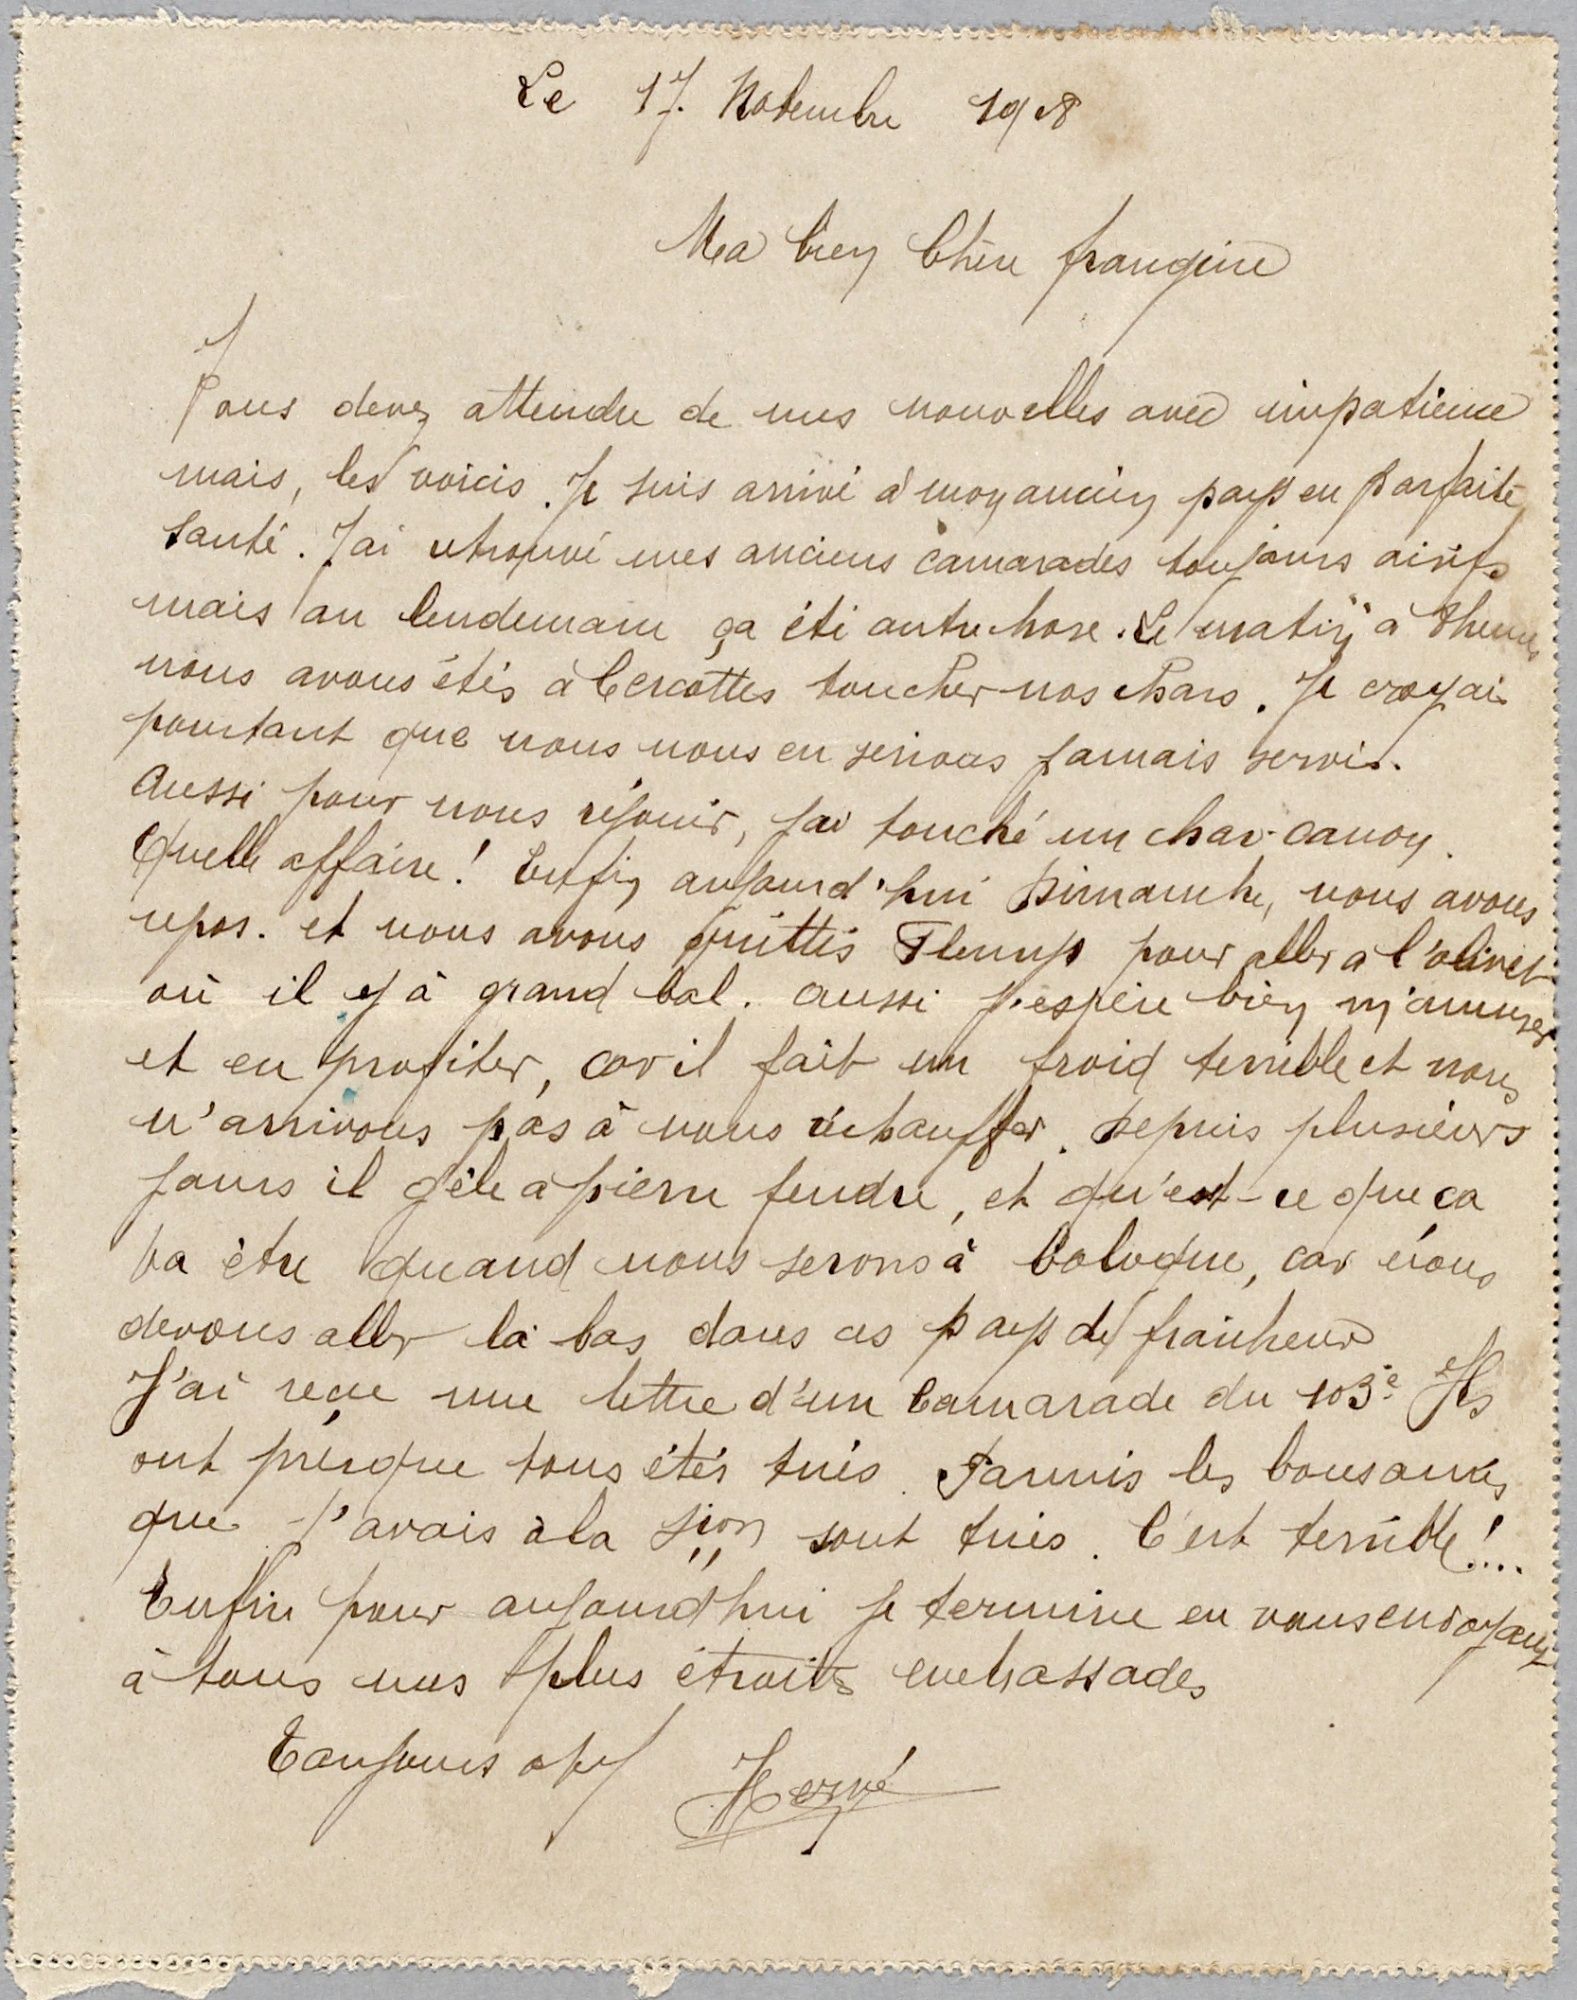 Le 17 Novembre 1918
Ma bien Chère frangine
Vous devez attendre de mes nouvelles avec impatience
mais, les voicis. Je suis arrivé à mon ancien pays en parfaite
santé. J'ai retrouvé mes anciens camarades toujours
mais au lendemain ça été autre chose. Le matin à 8 heures
nous avons étés à Cercottes toucher nos chars. Je croyais
pourtant que nous nous en serions jamais servis.
Aussi pour nous réjouir, j'ai touché un char-canon.
Quelle affaire! Enfin aujourd'hui Dimanche, nous avons
repos. et nous avons quittés pour aller a l'olivet
où il y à grand bal. aussi j'espère bien m'amuser
et en profiter, car il fait un froid terrible et nous
n'arrivons pas à nous réchauffer. Depuis plusieurs
jours il gèle a pierre fendre, et qu'est-ce que ça
va être quand nous serons à Cologne, car nous
devons aller là-bas dans ces pays de fraicheur
J'ai reçue une lettre d'un Camarade du 103e Ils
ont présque tous étés tués. Parmis les
que j'avais à la son sont tués. C'est terrible!...
Enfin pour aujourd'hui je termine en vous envoyant
à tous mes plus étroites embrassades
Toujours Hervé